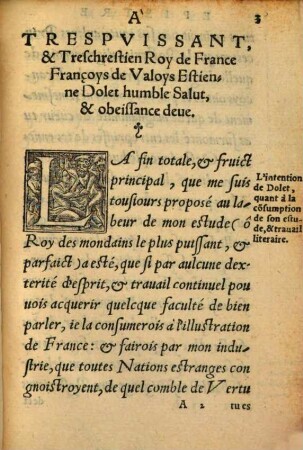 A
3
TRESPVISSANT,
& Treschrestien Roy de France
Françoys de Valoys Estien-
ne Dolet humble Salut,
& obeissance deue.
LA fin totale, & fruict
principal, que me suis
tousiours proposé au la-
beur de mon estude (ô
Roy des mondains le plus puissant, &
parfaict) a esté, que si par aulcune dex-
terité d'esprit, & trauail continuel pou
uois acquerir quelcque faculté de bien
parler, ie la consumerois à l'illustration
de France: & fairois par mon indu-
strie, que toutes Nations estranges con
gnoistroyent, de quel comble de Vertu
L'intention
de Dolet,
quant à la
cõsumption
de son estu-
de, & trauail
literaire.
A 2
tu es